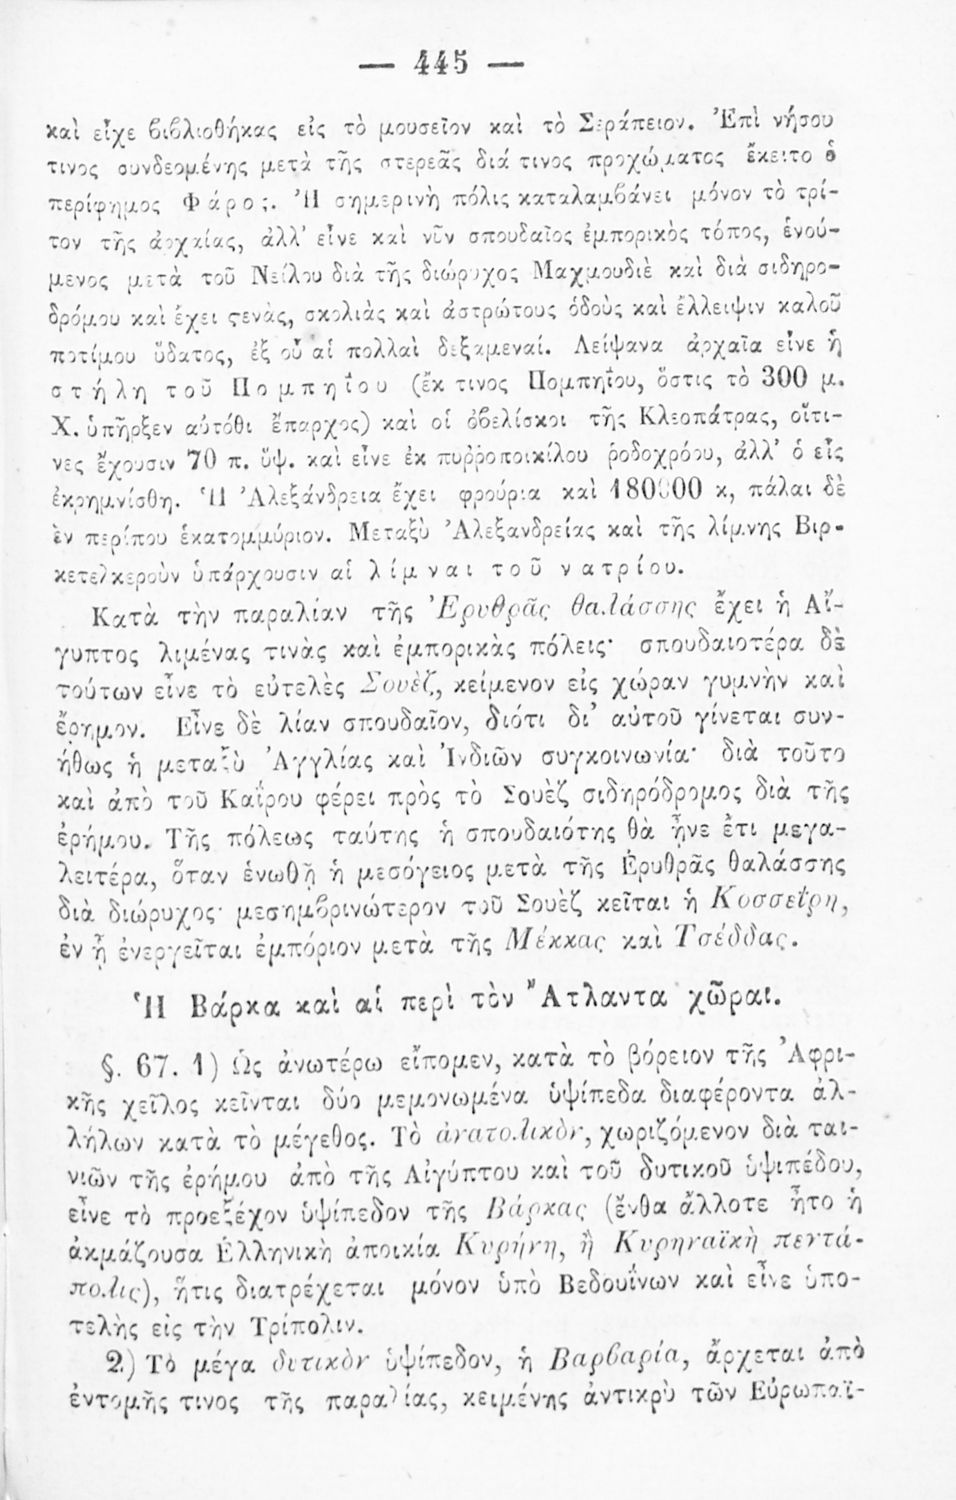 — 445 —
καὶ εἶχε βιβλιοθήκας εἰς τὸ μουσεῖον καὶ τὸ Σεράπειον. Ἐπὶ νήσου
τινος συνδεομένης μετὰ τῆς στερεᾶς διά τινος προχώματος ἔκειτο ὁ
περίφημος Φάρος. Ἡ σημερινὴ πόλις καταλαμβάνει μόνον τὸ τρί-
τον τῆς ἀρχαίας, ἀλλ' εἶνε καὶ νῦν σπουδαῖος ἐμπορικὸς τόπος, ἑνού-
μενος μετὰ τοῦ Νείλου διὰ τῆς διώρυχος Μαχμουδιὲ καὶ διὰ σιδηρο-
δρόμου καὶ ἔχει στενὰς, σκολιὰς καὶ ἀστρώτους ὁδοὺς καὶ ἔλλειψιν καλοῦ
ποτίμου ὕδατος, ἐξ οὗ αἱ πολλαὶ δεξαμεναί. Λείψανα ἀρχαῖα εἶνε ἡ
στήλη τοῦ Πομπηΐου (ἔκ τινος Πομπηΐου, ὅστις τὸ 300 μ.
Χ. ὑπῆρξεν αὐτόθι ἔπαρχος) καὶ οἱ ὀβελίσκοι τῆς Κλεοπάτρας, οἵτι-
νες ἔχουσιν 70 π. ὕψ. καὶ εἶνε ἐκ πυῤῥοποικίλου ῥοδοχρόου, ἀλλ' ὁ εἷς
ἐκρημνίσθη. Ἡ Ἀλεξάνδρεια ἔχει φρούρια καὶ 180000 κ, πάλαι δὲ
ἓν περίπου ἑκατομμύριον. Μεταξὺ Ἀλεξανδρείας καὶ τῆς λίμνης Βιρ-
κετελκεροὺν ὑπάρχουσιν αἱ λίμναι τοῦ νατρίου.
Κατὰ τὴν παραλίαν τῆς Ἐρυθρᾶς θαλάσσης ἔχει ἡ Αἴ-
γυπτος λιμένας τινὰς καὶ ἐμπορικὰς πόλεις· σπουδαιοτέρα δὲ
τούτων εἶνε τὸ εὐτελὲς Σουὲζ, κείμενον εἰς χώραν γυμνὴν καὶ
ἔρημον. Εἶνε δὲ λίαν σπουδαῖον, διότι δι' αὐτοῦ γίνεται συν-
ήθως ἡ μεταξὺ Ἀγγλίας καὶ Ἰνδιῶν συγκοινωνία· διὰ τοῦτο
καὶ ἀπὸ τοῦ Καΐρου φέρει πρὸς τὸ Σουὲζ σιδηρόδρομος διὰ τῆς
ἐρήμου. Τῆς πόλεως ταύτης ἡ σπουδαιότης θὰ ἦνε ἔτι μεγα-
λειτέρα, ὅταν ἑνωθῇ ἡ μεσόγειος μετὰ τῆς Ἐρυθρᾶς θαλάσσης
διὰ διώρυχος· μεσημβρινώτερον τοῦ Σουὲζ κεῖται ἡ Κοσσεΐρη,
ἐν ᾗ ἐνεργεῖται ἐμπόριον μετὰ τῆς Μέκκας καὶ Τσέδδας.
Ἡ Βάρκα καὶ αἱ περὶ τὸν Ἄτλαντα χῶραι.
§. 67. 1) Ὡς ἀνωτέρω εἴπομεν, κατὰ τὸ βόρειον τῆς Ἀφρι-
κῆς χεῖλος κεῖνται δύο μεμονωμένα ὑψίπεδα διαφέροντα ἀλ-
λήλων κατὰ τὸ μέγεθος. Τὸ ἀνατολικὸν, χωριζόμενον διὰ ται-
νιῶν τῆς ἐρήμου ἀπὸ τῆς Αἰγύπτου καὶ τοῦ δυτικοῦ ὑψιπέδου,
εἶνε τὸ προεξέχον ὑψίπεδον τῆς Βάρκας (ἔνθα ἄλλοτε ἦτο ἡ
ἀκμάζουσα Ἑλληνικὴ ἀποικία Κυρήνη, ἢ Κυρηναϊκὴ πεντά-
πολις), ἥτις διατρέχεται μόνον ὑπὸ Βεδουΐνων καὶ εἶνε ὑπο-
τελὴς εἰς τὴν Τρίπολιν.
2) Τὸ μέγα δυτικὸν ὑψίπεδον, ἡ Βαρβαρία, ἄρχεται ἀπὸ
ἐντομῆς τινος τῆς παραλίας, κειμένης ἀντικρὺ τῶν Εὐρωπαϊ-